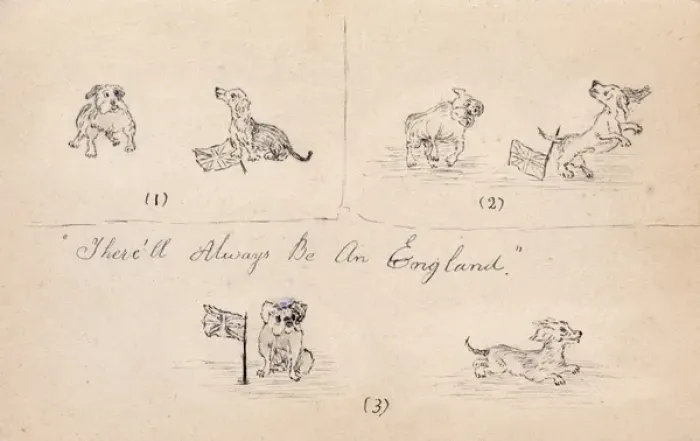 (1)
(2)
"There'll Always Be An England."
(3)